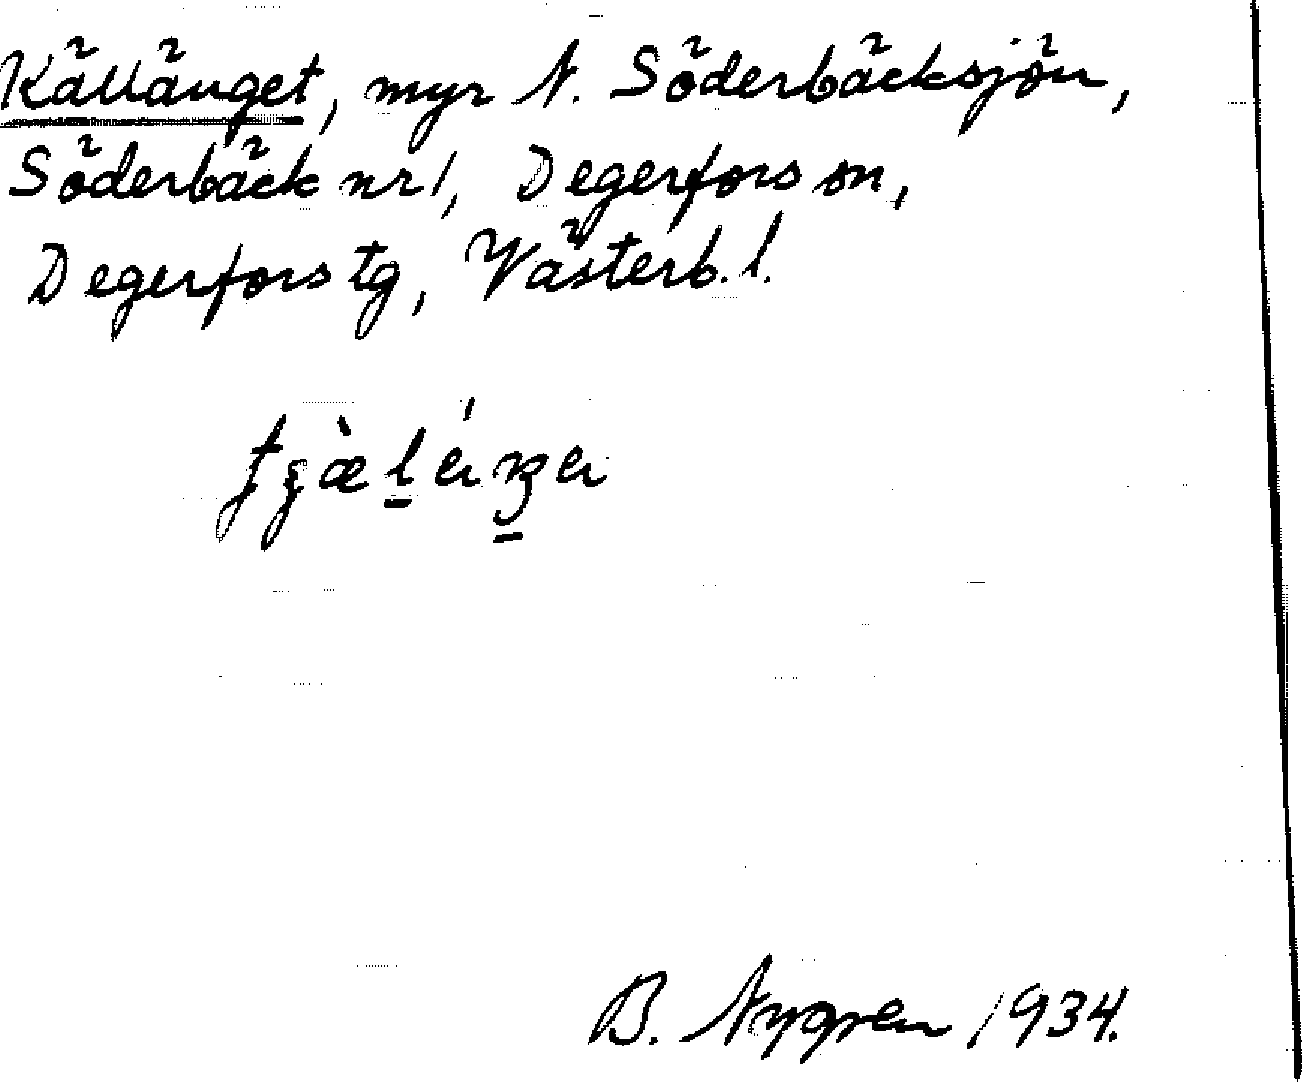 Källänget, myr N. Söderbäcksjön,
Söderbäck nr 1, Degerfors sn,
Degerfors tg, Västerb. l.
B. Nygren 1934.